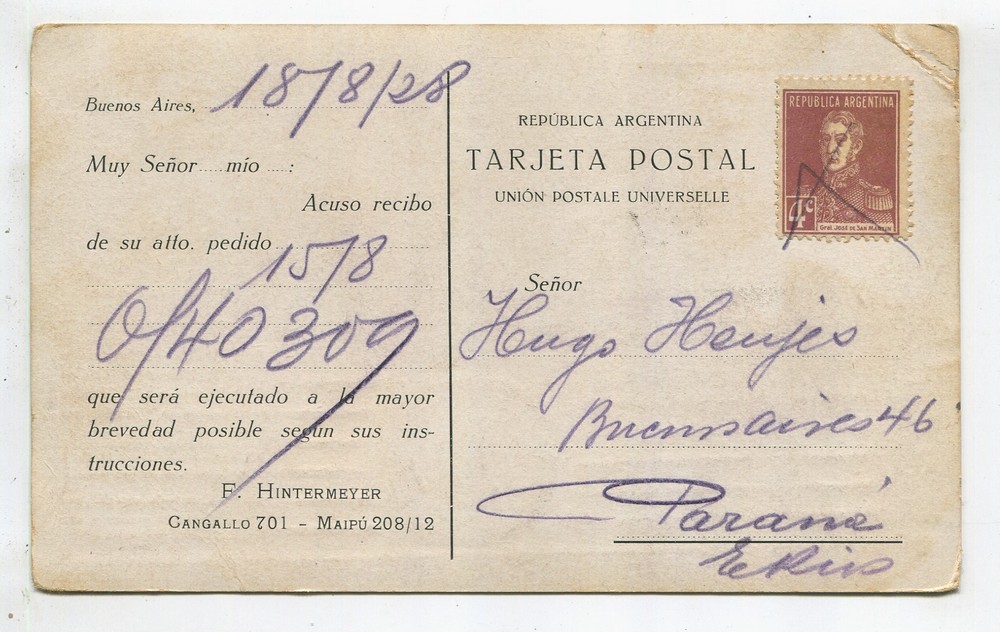 Buenos Aires, 18/8/28
Muy Señor mío :
Acuso recibo
de su atto. pedido
15/8
O/40309
que será ejecutado a la mayor
brevedad posible según sus ins-
trucciones.
F. HINTERMEYER
CANGALLO 701 - MAIPÚ 208/12
REPÚBLICA ARGENTINA
TARJETA POSTAL
UNIÓN POSTALE UNIVERSELLE
REPUBLICA ARGENTINA
4c
Gral. JOSÉ DE SAN MARTIN
Señor
Hugo Henjes
Buenos aires 46
Paraná
E Rios